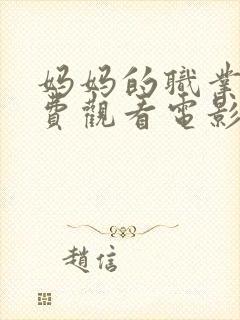 妈妈的職業
費觀看電影
趙信